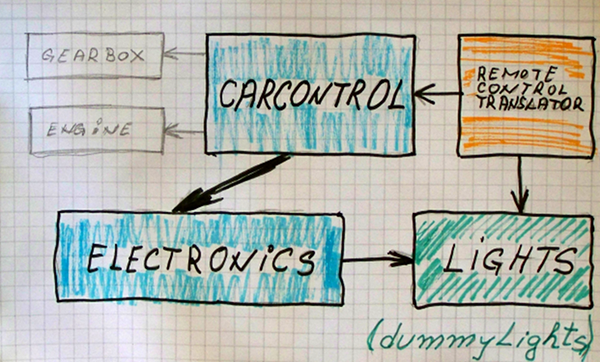 GEARBOX
CARCONTROL
REMOTE
CONTROL
TRANSLATOR
ENGiNE
ELECTRONiCS
LiGHTS
(dummyLights)